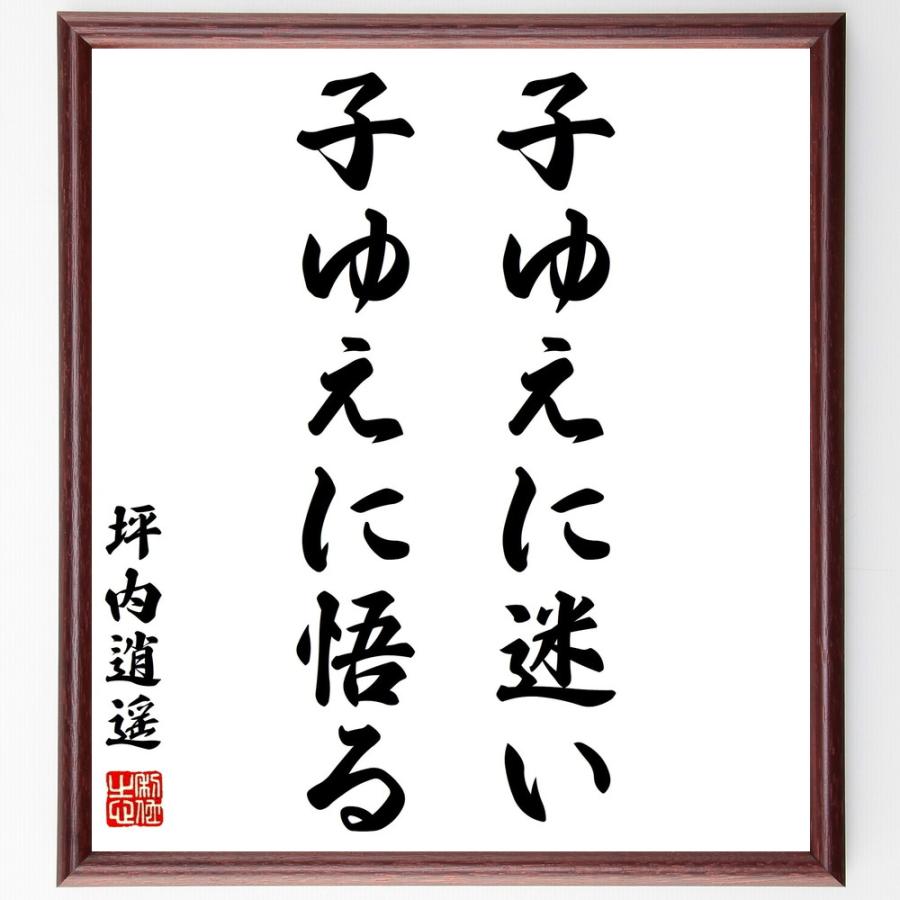 子ゆえに迷い
子ゆえに悟る
坪内逍遥